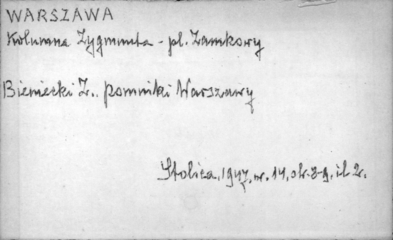 WARSZAWA
Kolumna Zygmunta - pl. Zamkowy
Bieniecki Z., Pomniki Warszawy
Stolica, 1947, nr. 14, str. 8-9, il 2.